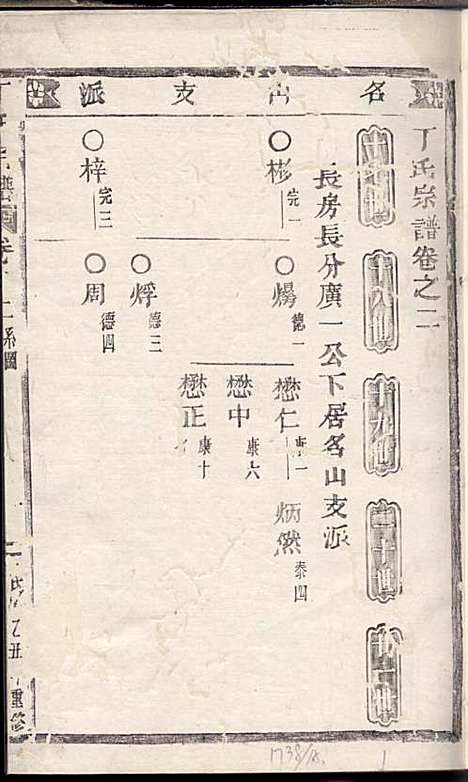 名山支派
丁氏宗譜卷之二
十七世
十八世
十九世
二十世
廿一世
長房長分廣一公下居名山支派
彬 完一
煬 德一
懋仁 康一
炳然 泰四
懋中 康六
懋正 康十
烰 德三
梓 完三
周 德四
系圖
乙丑重修
1738/18.
1